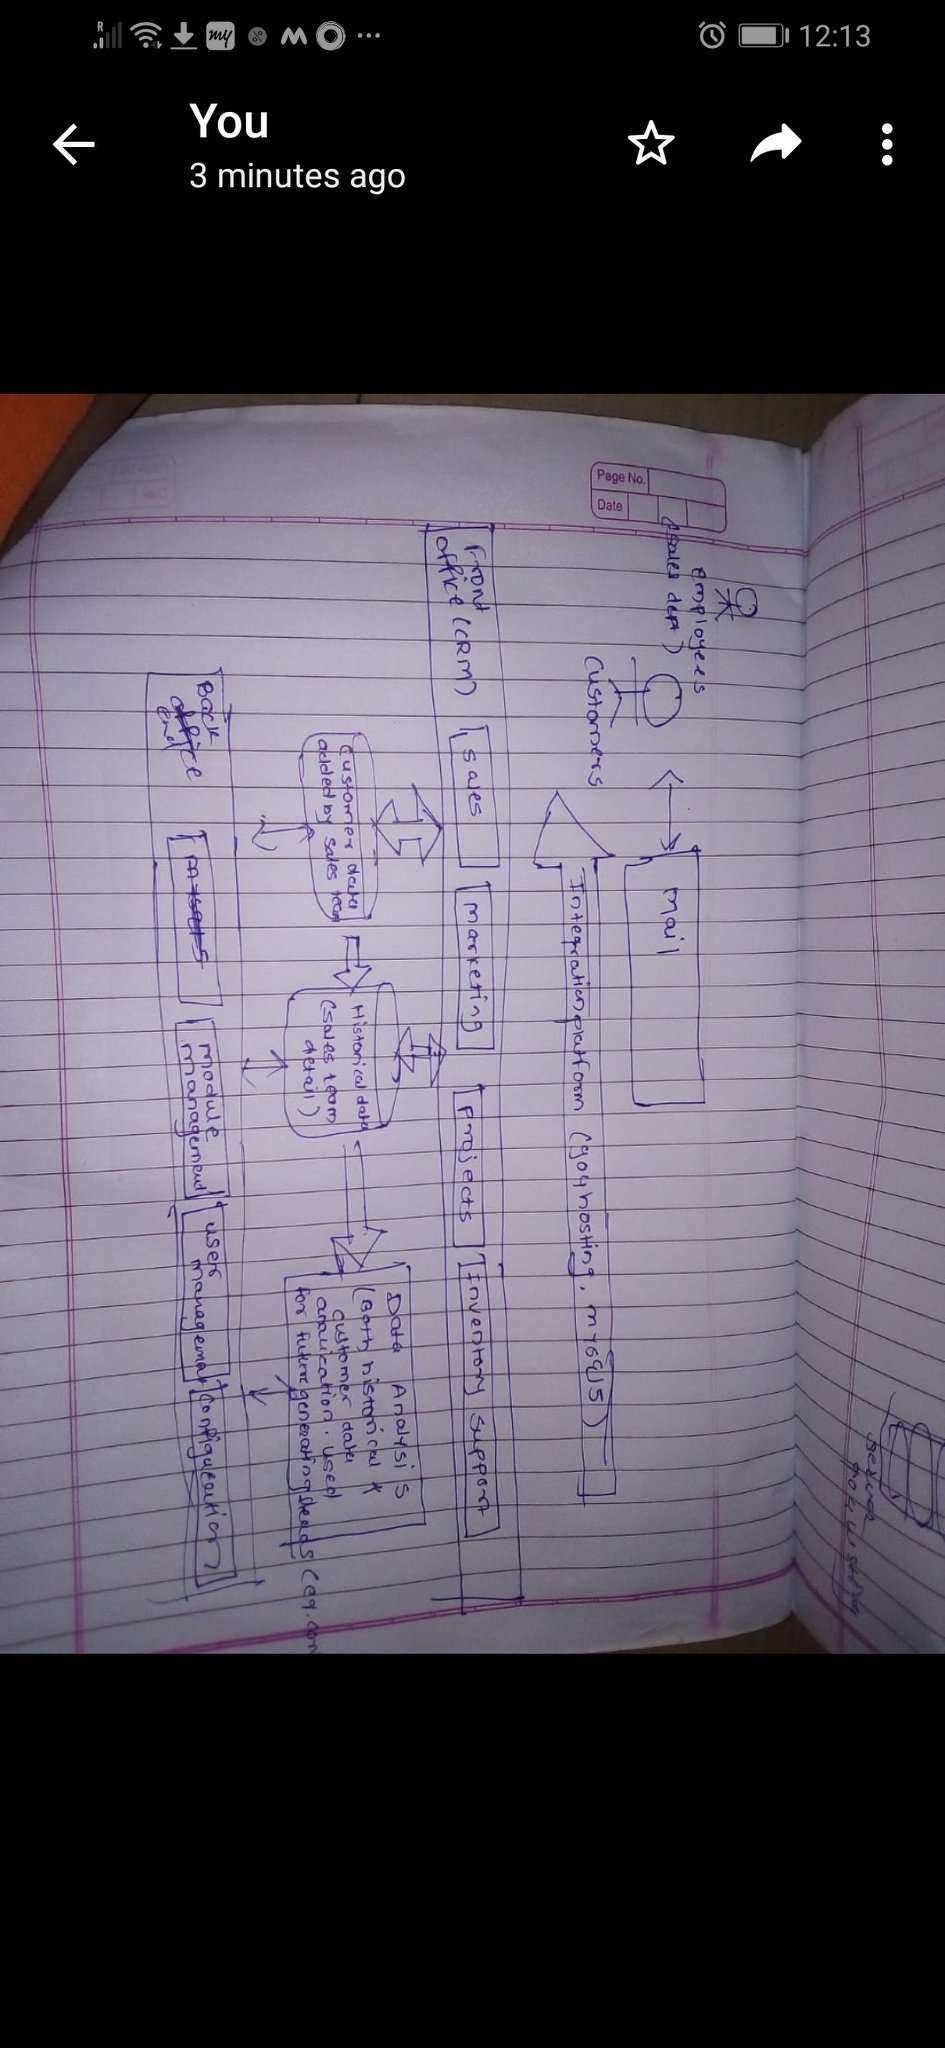 12:13
You
3 minutes ago
R
my
server
Page No.
Date
employees
(sales dept)
customers
mail
Integration platform (go4hosting.
Front
office (CRM)
sales
marketing
projects
Inventory support
customer data
added by sales team
Historical data
(sales team
detail)
Data Analysis
(Both historical &
customer data
used
for future generating leads (eg. con
Back
end
module
management
user
management
configuration